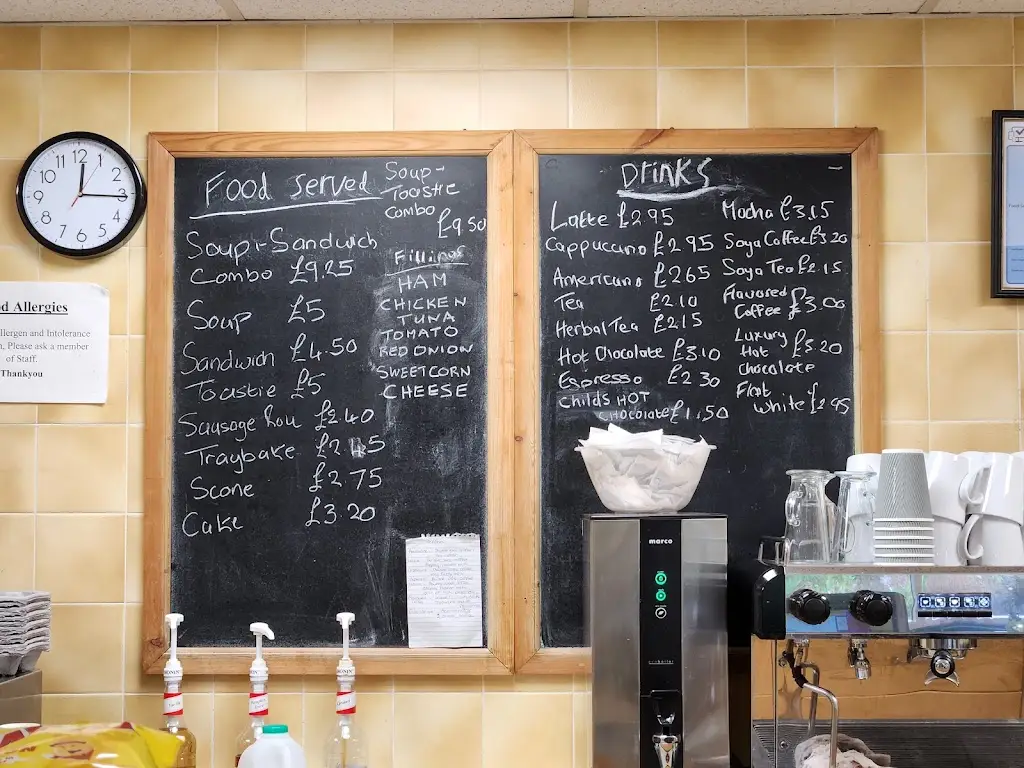 12
11
1
10
2
9
3
8
4
7
5
6
d Allergies
llergen and Intolerance
, Please ask a member
of Staff.
Thankyou
Food served
Soup + Sandwich
Combo £9.25
Soup £5
Sandwich £4.50
Toastie £5
Sausage Roll £2.40
Traybake £2.45
Scone £2.75
Cake £3.20
Soup -
Toastie
Combo
£9.50
Fillings
HAM
CHICKEN
TUNA
TOMATO
RED ONION
SWEETCORN
CHEESE
DRINKS
Latte £2.95
Cappuccino £2.95
Americano £2.65
Tea £2.10
Herbal Tea £2.15
Hot Chocolate £3.10
Espresso £2.30
CHILDS HOT
CHOCOLATE £1.50
Mocha £3.15
Soya Coffee £3.20
Soya Tea £2.15
Flavored
Coffee £3.00
Luxury
Hot £3.20
Chocolate
Flat
White £2.95
marco